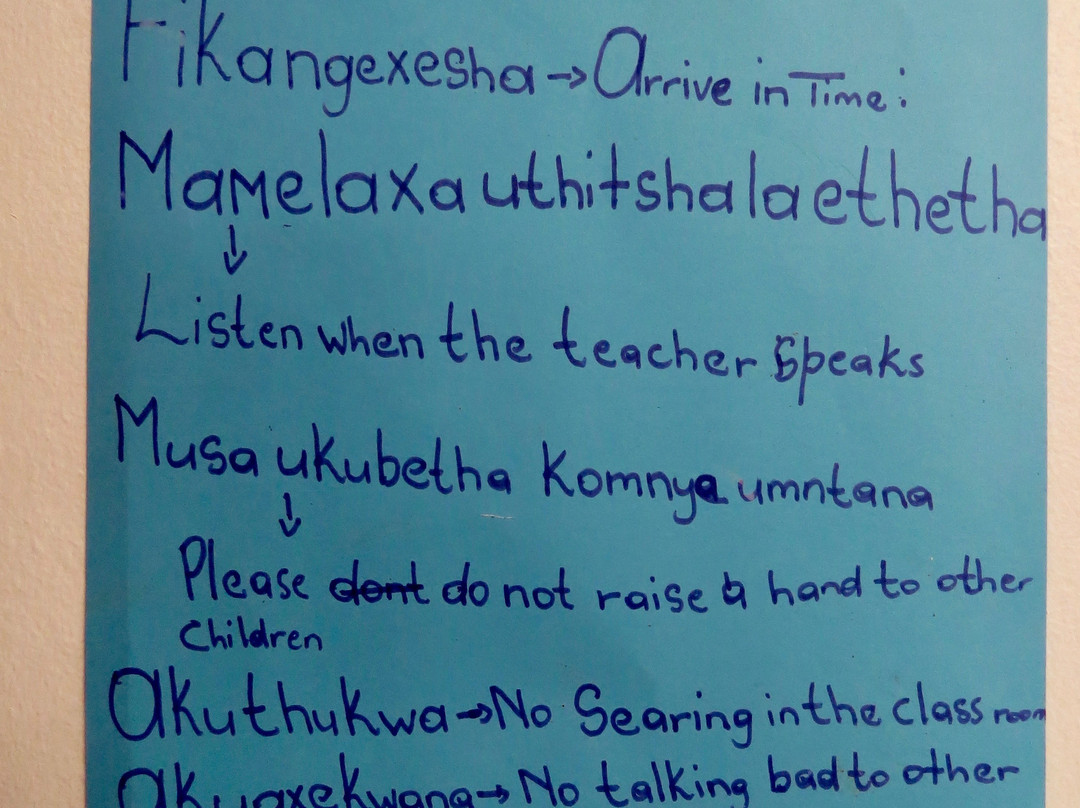 Fikangexesha → Arrive in Time:
Mamelaxa uthitshala ethetha
↓
Listen when the teacher Speaks
Musa ukubetha komnya umntana
↓
Please dont do not raise a hand to other
Children
Akuthukwa → No Searing in the class room
Akuqxekwana → No talking bad to other